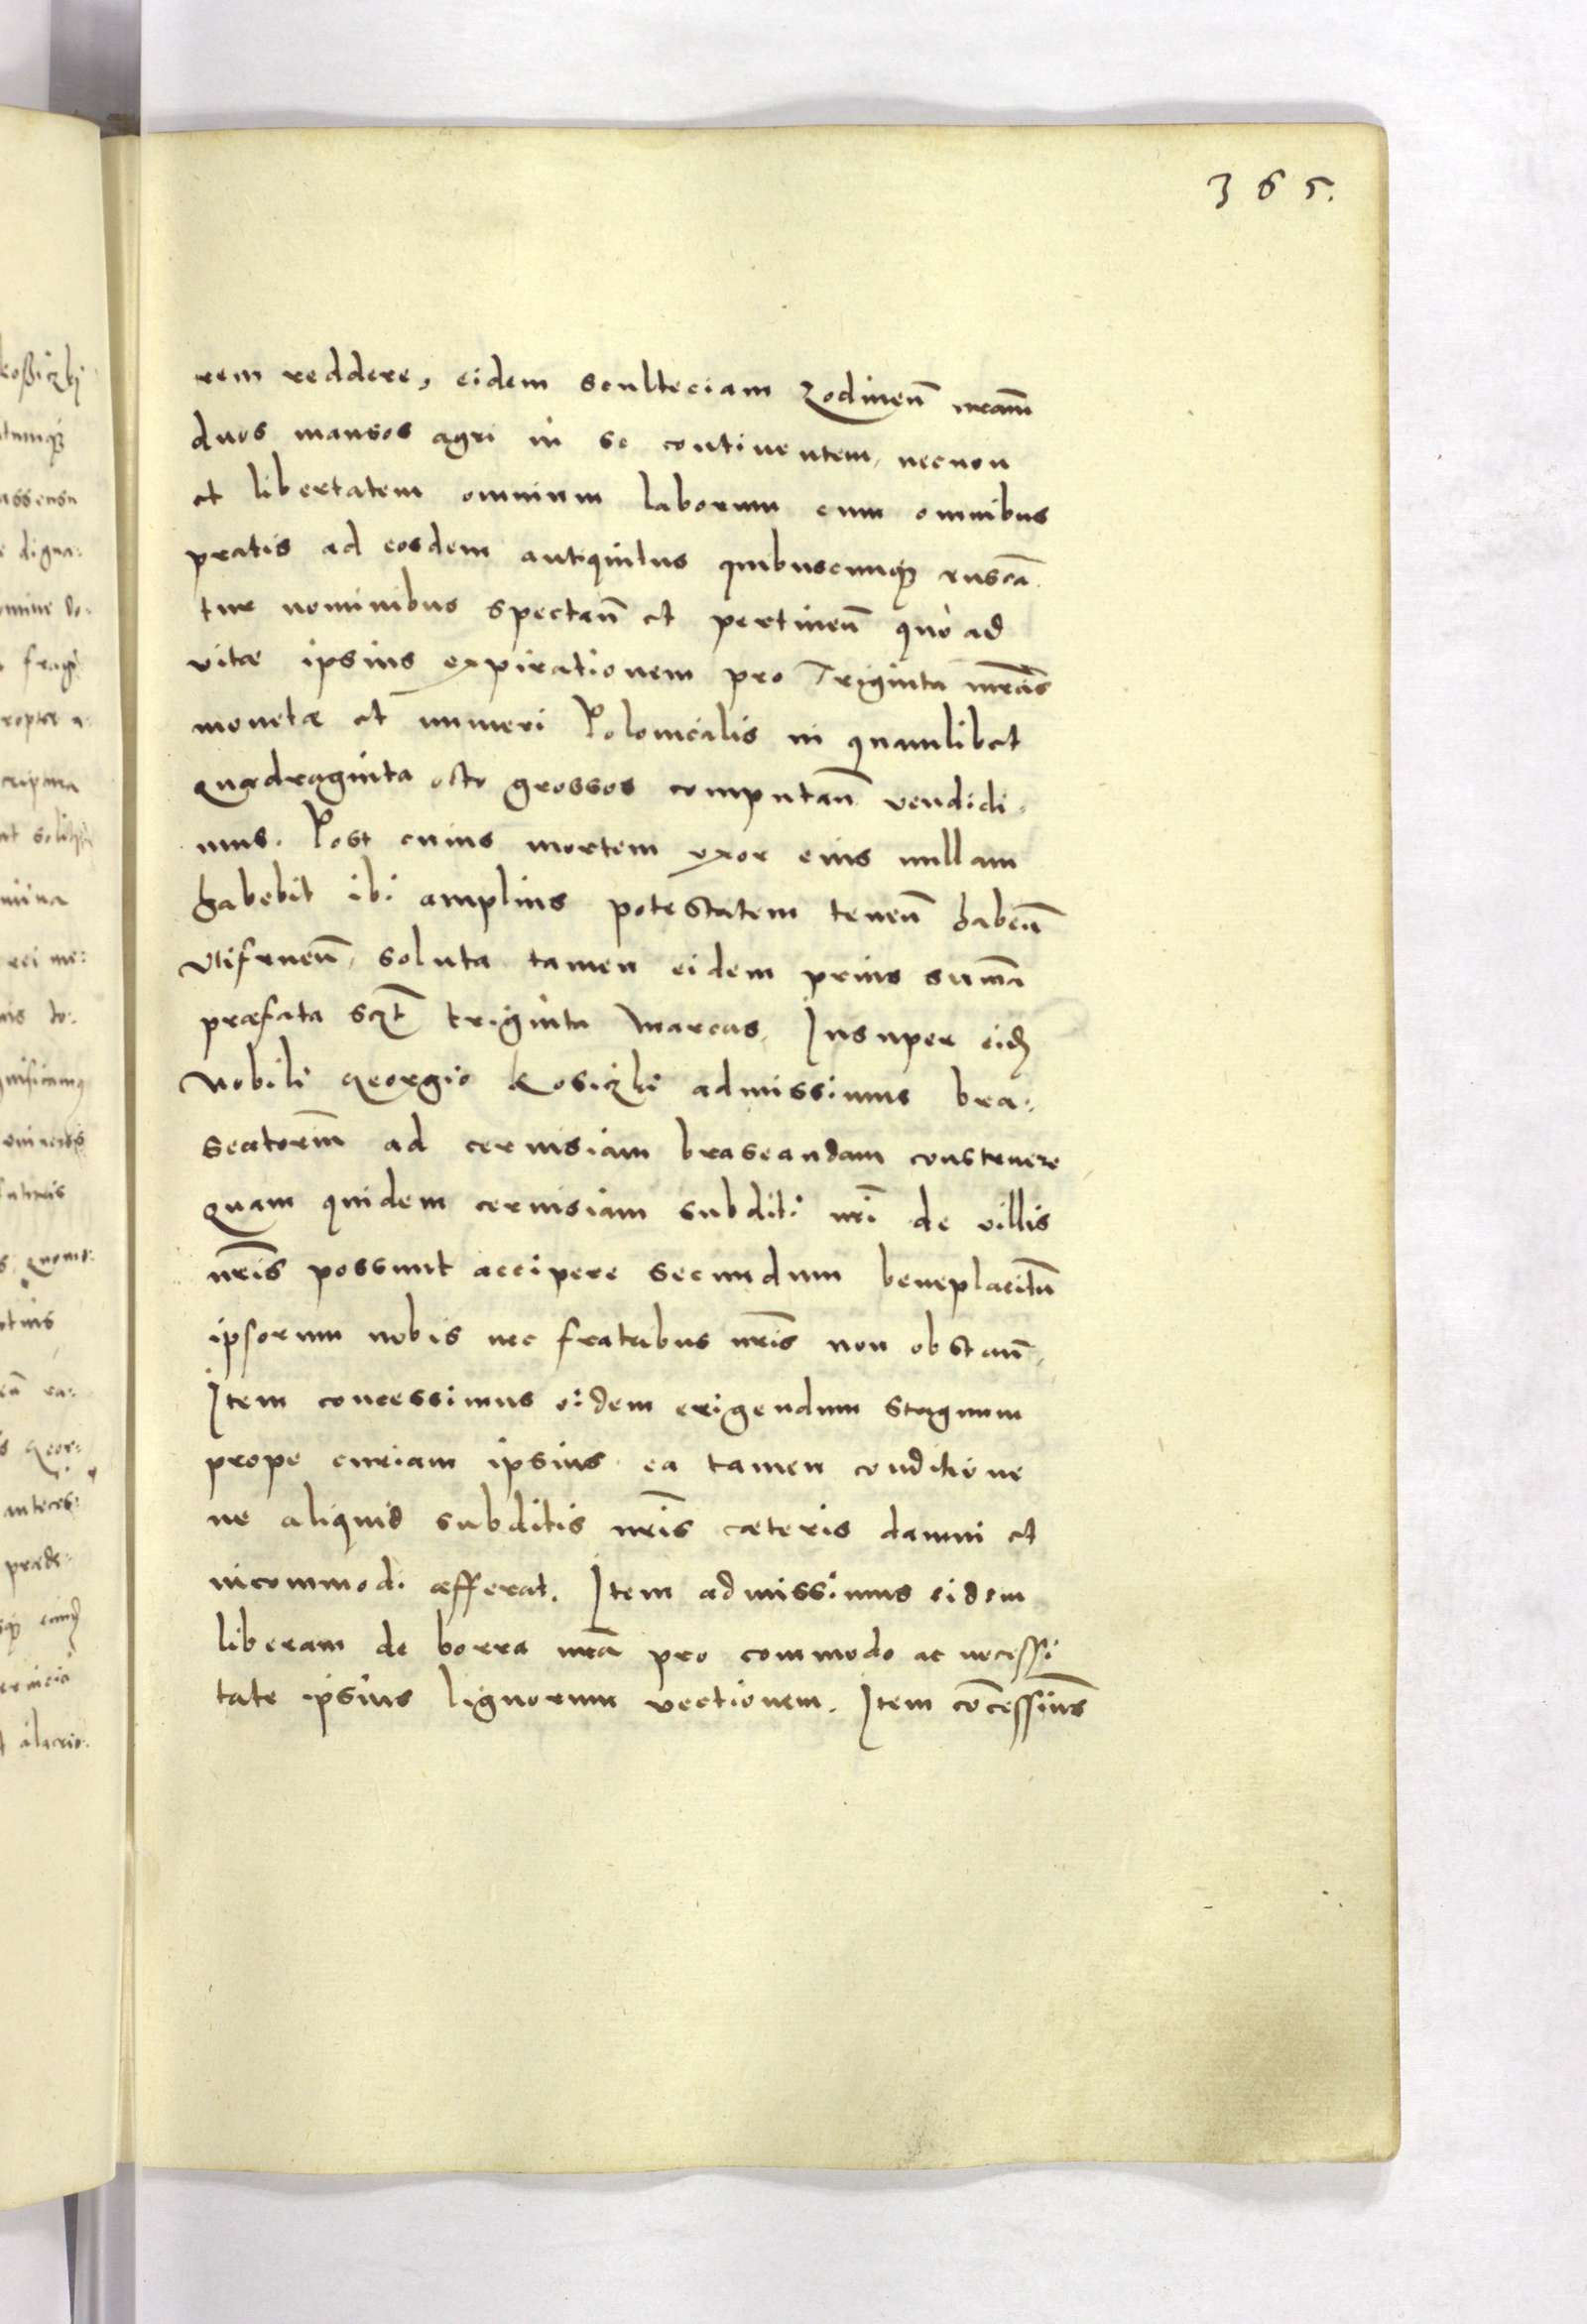 365.
rem reddere, eidem sculteciam Zodineñ nrãm
duos mansos agri in se continentem, necnon
et libertatem omnium laborum cum omnibus
pratis ad eosdem antiquitus quibuscunqꝫ
tur nominibus spectañ et pertineñ quo ad
vitae ipsius expirationem pro Triginta mrcãs
monetae et numeri Polonicalis in quamlibet
quadraginta octo grossos computañ vendidi-
mus. Post cuius mortem uxor eius nullam
habebit ibi amplius potestatem teneñ habeñ
Utifrueñ, soluta tamen eidem prius sum̃a
praefata triginta Marcas, Insuper eidẽ
Nobili Georgio Kosiczki admissimus bra-
seatoriũm ad cervisiam braseandam construere
Quam quidem cervisiam subditi nrĩ de villis
nrĩs possunt accipere secundum beneplacitũ
ipsorum nobis nec fratribus nrĩs non obstañ,
Item concessimus eidem erigendum stagnum
prope curiam ipsius ea tamen conditione
ne aliquid subditis nrĩs caeteris damni et
incommodi afferat. Item admissimus eidem
liberam de borra nrã pro commodo ac necessi
tate ipsius lignorum vectionem. Item cõcessim̃s